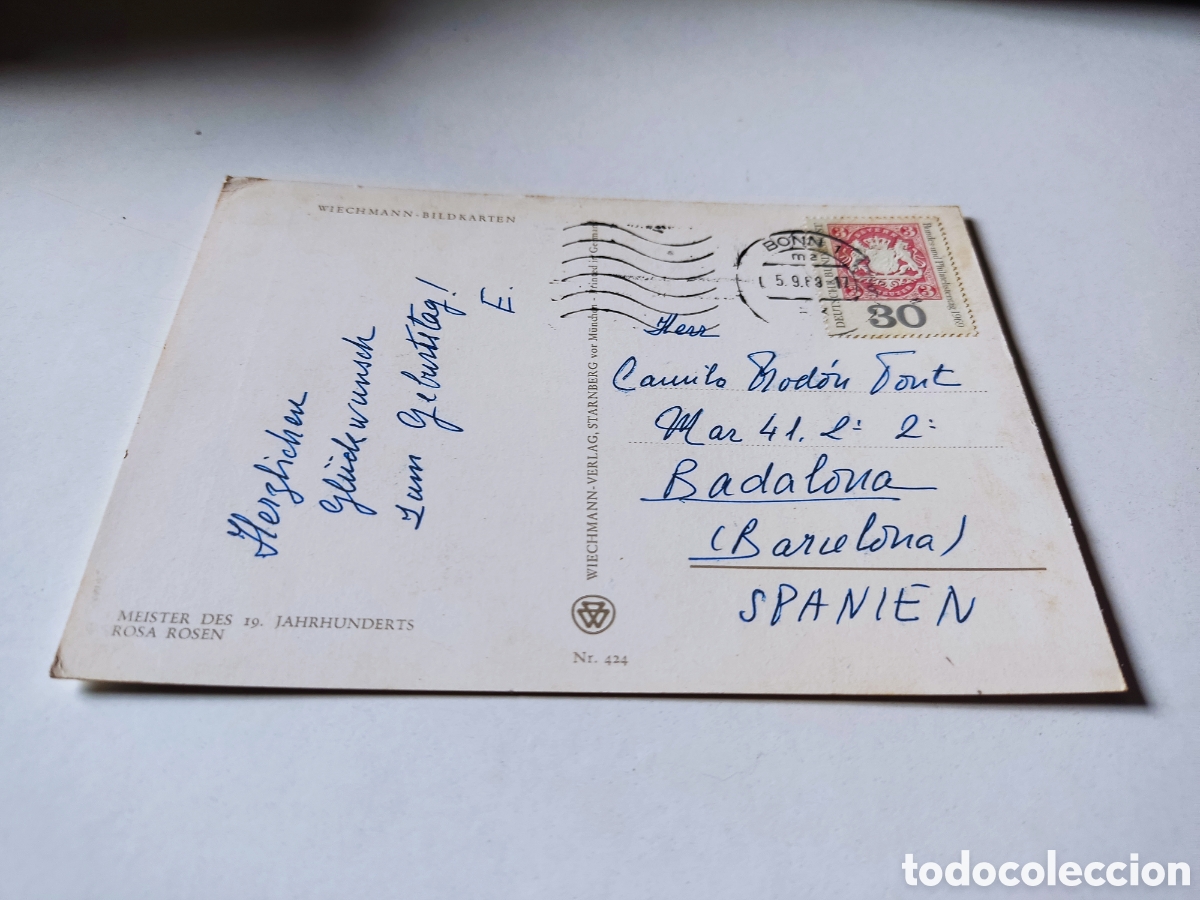 WIECHMANN-BILDKARTEN
Herzlichen
Glückwunsch
zum Geburtstag!
E.
MEISTER DES 19. JAHRHUNDERTS
ROSA ROSEN
WIECHMANN-VERLAG, STARNBERG vor München - Printed in German
Nr. 424
BONN 1
5.9.69
DEUTSCHE BUNDESPOST
30
1969
Herr
Camilo Rodón Font
Mar 41. 2º 2º
Badalona
(Barcelona)
SPANIEN
todocoleccion